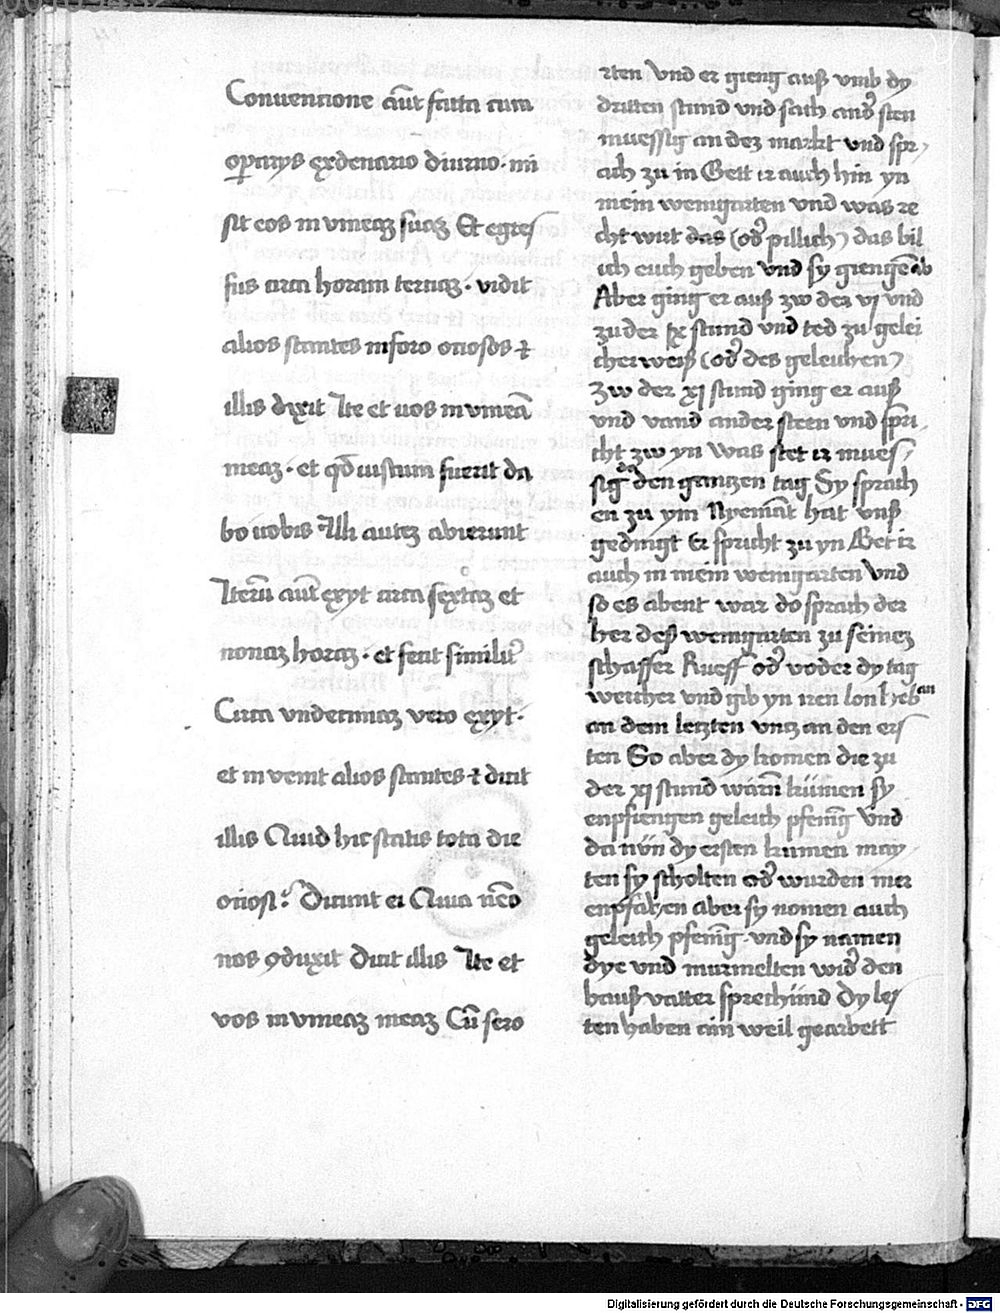 Conuencione aut̄ facta cum
oꝑarys exdenario diurno · mi
sit eos in vineaꝫ suaꝫ Et egres
sus circa horam terciaꝫ · vidit
alios stantes inforo ociosos ⁊
illis dixit Ite et uos in vineā
meaꝫ · et qd̄ iustum fuerit da
bo uobis Illi auteꝫ abierunt
Iterū aut̄ exyt circa sextaꝫ et
nonaꝫ horaꝫ · et fecit similit̾
Circa vndecimaꝫ vero exyt ·
et in venit alios stantes ⁊ dicit
illis Quid hic statis tota die
ociosi ? Dicunt ei Quia nēo
nos ꝯduxit Dicit illis Ite et
vos in vineaꝫ meaꝫ Cū sero
rten Vnd er gieng auß vmb dy
dritten stund vnd sach and̾ sten
muessig an deꝫ markt vnd spr
ach zu in Gett ir auch hin yn
mein weingarten vnd was re
cht wirt das (od̾ pillich) das bil
ich euch geben vnd sy giengē ab
Aber ging er auß zw der vj vnd
zuder jx stund vnd ted zu gelei
cher weiß (od̾ des geleichen)
Zw der xj stund ging er auß
vnd vand ander steen vnd spri
cht zw yn was stet ir mues
sig den gantzen tag Sy sprach
en zu ym Nyemāt hat vnß
gedingt Er spricht zu yn Get ir
auch in mein weingarten Vnd
so es abent war do sprach der
her deß weingarten zu seineꝫ
schaffer Rueff od̾ voder dy tag
wercher vnd gib yn iren lon heb an
an dem letzten vntz an den ers
ten So aber dy komen die zu
der xj stund warn̄ kümen sy
enpfiengen geleich pfenīg Vnd
da nün dy ersten kumen may
ten sy scholten od̾ wurden mer
enpfahen aber sy nomen auch
geleich pfenīg · vnd sy namen
dye vnd murmelten wid̾ den
hauß vatter sprechünd Dy les
ten haben ain weil gearbeit
Digitalisierung gefördert durch die Deutsche Forschungsgemeinschaft - DFG